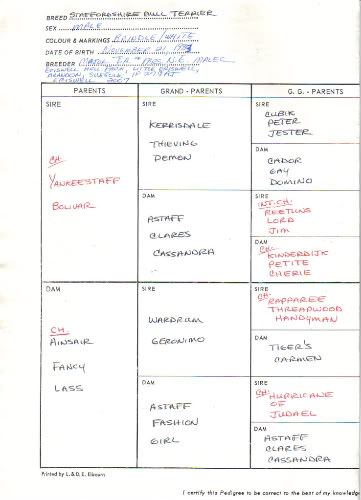 BREED STAFFORDSHIRE BULL TERRIER
SEX MALE
COLOUR & MARKINGS BRINDLE/WHITE
DATE OF BIRTH NOVEMBER 21, 1983
BREEDER MAJOR T.R. + MRS N.E. MALEC
ERISWELL HALL FARM, LITTLE ERISWELL,
BRANDON, SUFFOLK,
ERISWELL 2007
PARENTS GRAND - PARENTS G. G. - PARENTS
SIRE
CH.
YANKEESTAFF
BOLIVAR
SIRE
KERRISDALE
THIEVING
DEMON
SIRE
CUBIK
PETER
JESTER
DAM
CADOR
GAY
DOMINO
DAM
ASTAFF
CLARES
CASSANDRA
SIRE
INT. CH.
REETUNS
LORD
JIM
DAM
CH.
KINDERDIJK
PETITE
CHERIE
DAM
CH.
AINSAIR
FANCY
LASS
SIRE
WARDRUM
GERONIMO
SIRE
CH.
RAPPAREE
THREAPWOOD
HANDYMAN
DAM
TIGER'S
CARMEN
DAM
ASTAFF
FASHION
GIRL
SIRE
CH. HURRICANE
OF
JUDAEL
DAM
ASTAFF
CLARES
CASSANDRA
Printed by L. & D. E. Elbourn
I certify this Pedigree to be correct to the best of my knowledg